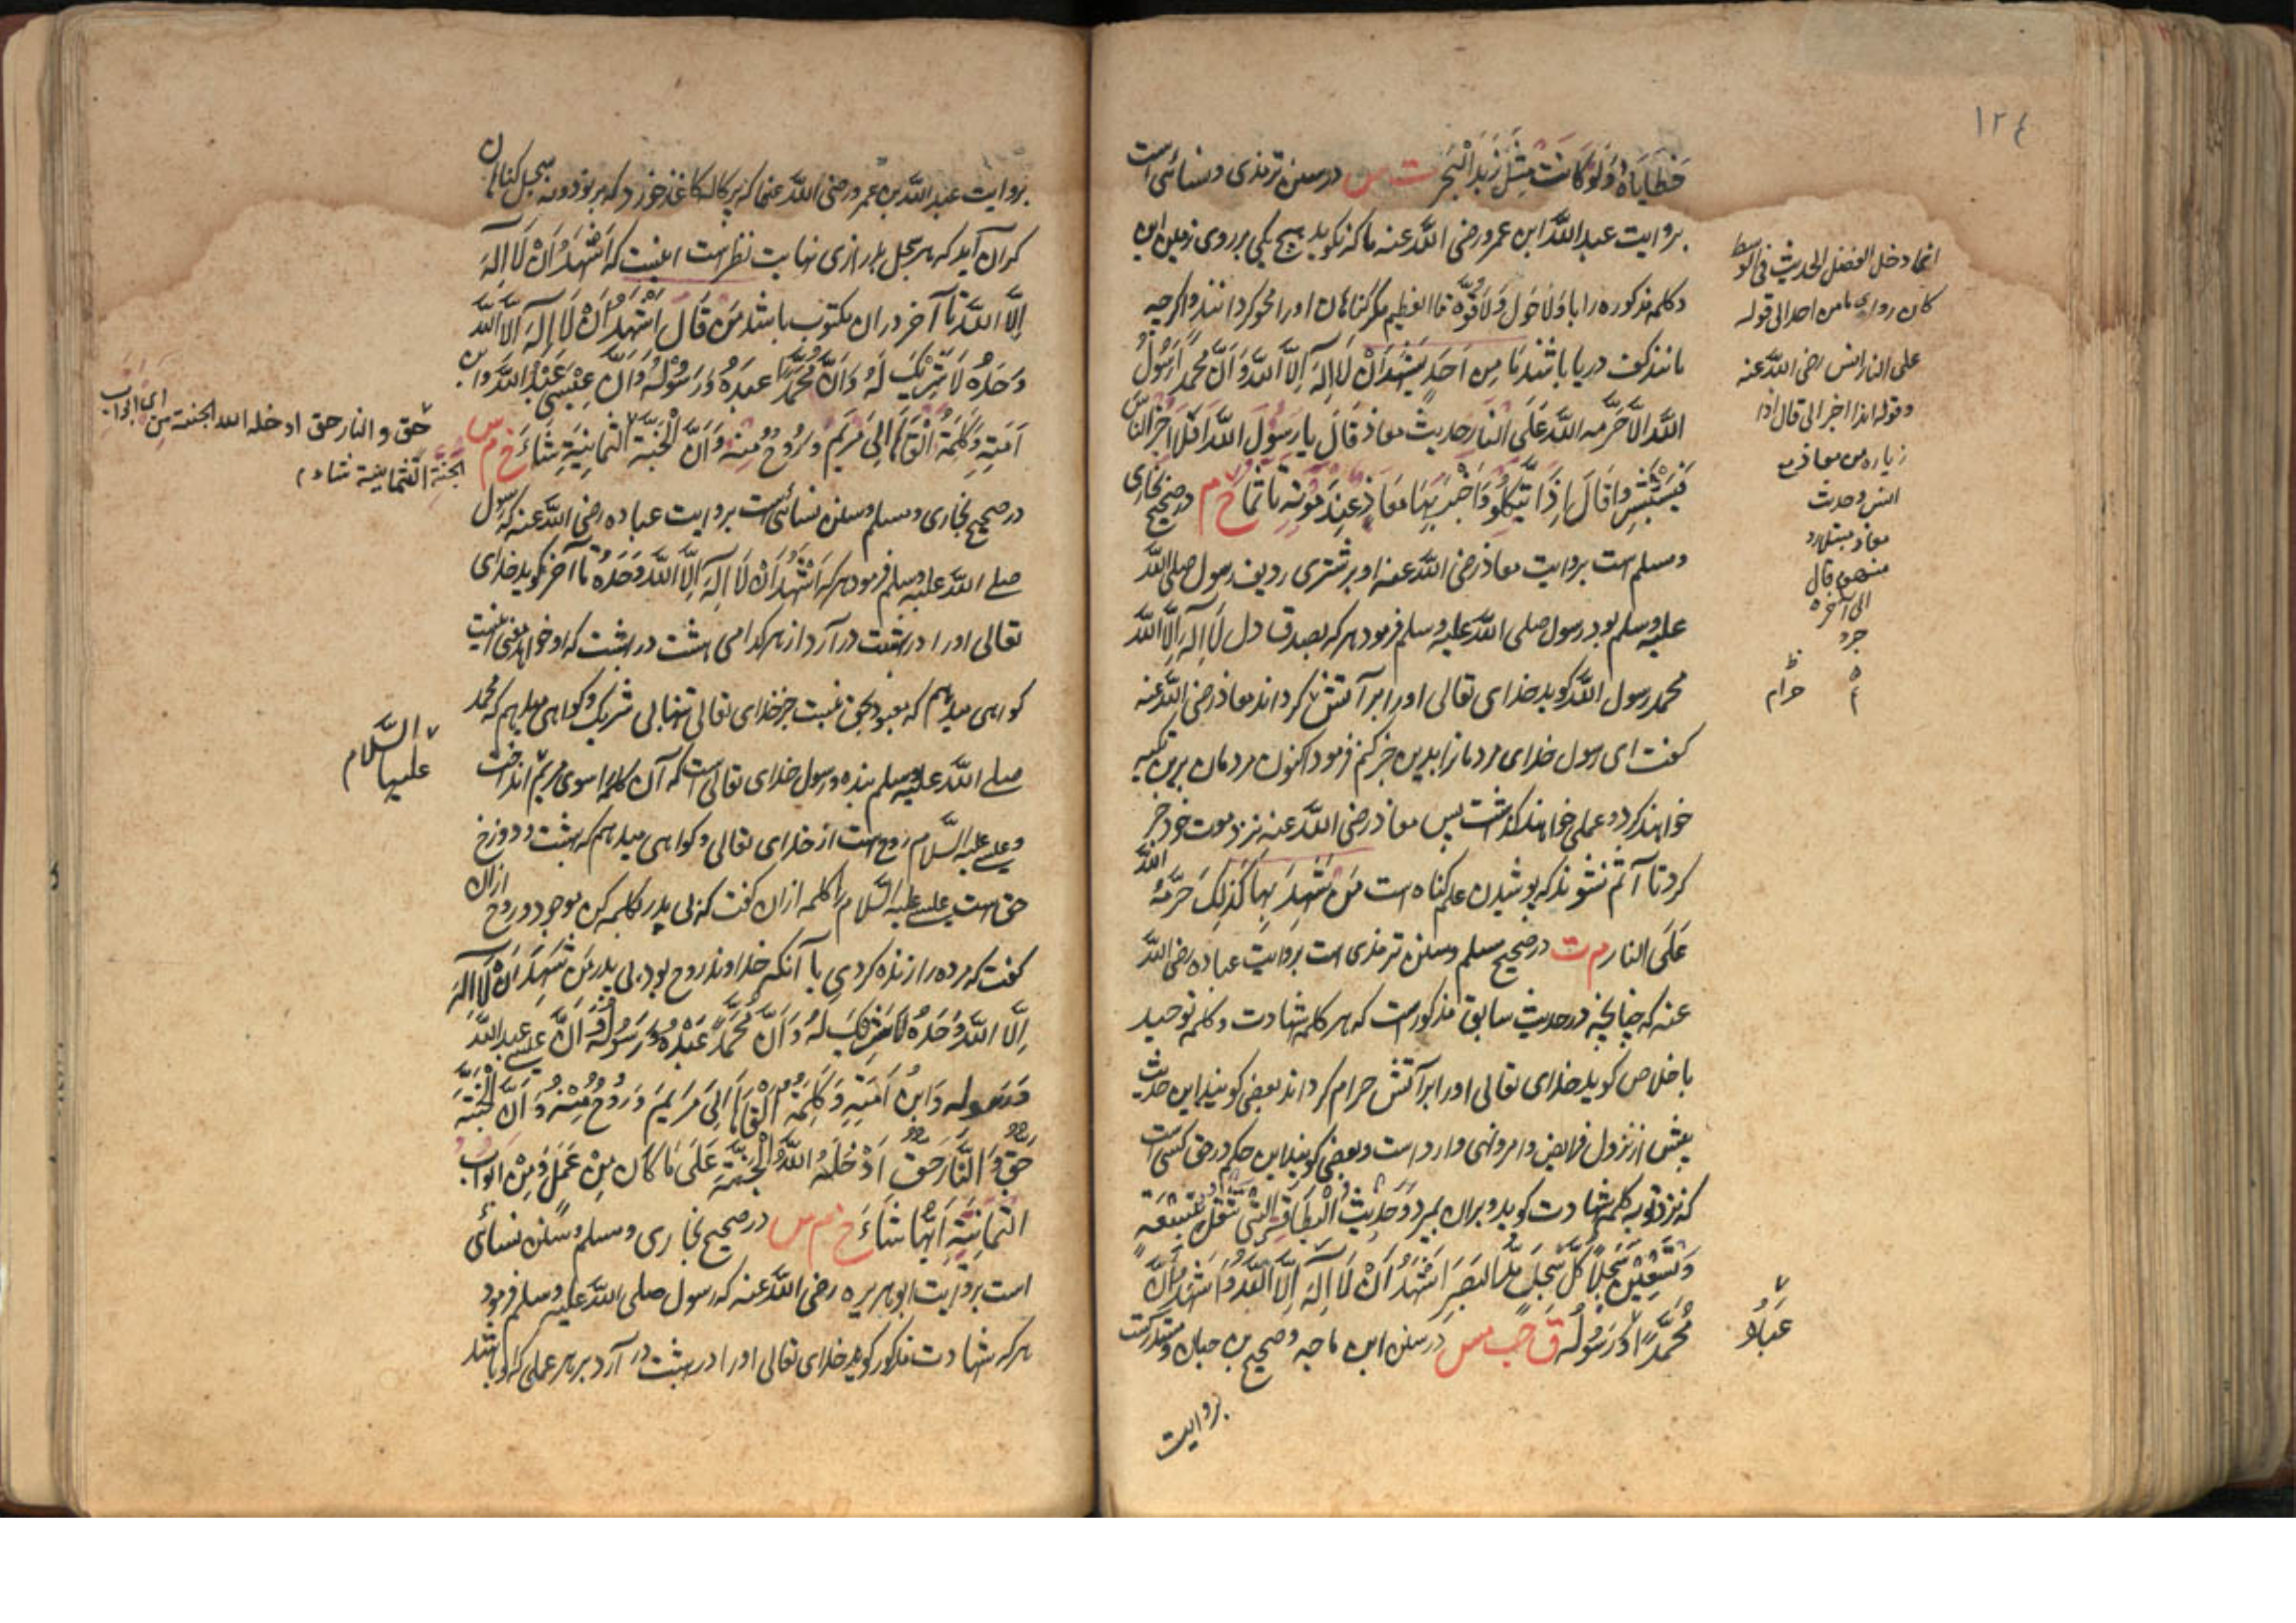 ١٢٤
خَطَايَاهُ وَلَوْ كَانَتْ مِثْلَ زَبَدِ الْبَحْرِ ت س در سنن ترمذی و نسائی است
بروایت عبد الله ابن عمرو رضی الله عنه ما که نکوید هیچ یکی بر روی زمین این
دکلمه مذکوره را با وَلَا حَوْلَ وَلَا قُوَّةَ تا العظیم مکر کناهان اورا محو کردانند و اکرچه
مانند کف دریا باشند مَا مِنْ اَحَدٍ يَشْهَدُ اَنْ لَا اِلَهَ اِلَّا اللَّهُ وَاَنَّ مُحَمَّدًا رَسُولُ
اللَّهِ اِلَّا حَرَّمَهُ اللَّهُ عَلَى النَّارِ حدیث معاذ قَالَ يَا رَسُولَ اللَّهِ اَفَلَا اُخْبِرُ النَّاسَ
فَيَسْتَبْشِرُوا قَالَ اِذًا يَتَّكِلُوا وَاَخْبَرَ بِهَا مُعَاذٌ عِنْدَ مَوْتِهِ تَاَثُّمًا خ م در صحیح بخاری
و مسلم است بروایت معاذ رضی الله عنه او بر شتری ردیف رسول صلی الله
علیه وسلم بود رسول صلی الله علیه وسلم فرمود هر که بصدق دل لَا اِلَهَ اِلَّا اللَّهُ
محمد رسول الله کوید خدای تعالی اورا بر آتش کرداند معاذ رضی الله عنه
کفت ای رسول خدای مردمانرا بدین خبر کنم فرمود اکنون مردمان برین تکیه
خواهند کرد و عمل خواهند کذاشت پس معاذ رضی الله عنه نزد موت خود خبر
کرد تا آثم نشوند که پوشیدن علم کناه است مَنْ شَهِدَ بِهَا كَذَلِكَ حَرَّمَهُ اللَّهُ
عَلَى النار م ت در صحیح مسلم و سنن ترمذی است بروایت عباده رضی الله
عنه که چنانچه در حدیث سابق مذکور است که هر کلمه شهادت و کلمه توحید
باخلاص کوید خدای تعالی اورا بر آتش حرام کرداند بعضی کویند این حدیث
پیش از نزول فرایض و امر و نهی وارد است و بعضی کویند این حکم در حق کسی است
که نزد توبه کلمه شهادت کوید و بران بمیرد وَحَدِيثُ الْبِطَاقَةِ الَّتِي تَثْقُلُ تِسْعَةً
وَتِسْعِينَ سِجِلًّا كُلُّ سِجِلٍّ مَدَّ الْبَصَرِ اَشْهَدُ اَنْ لَا اِلَهَ اِلَّا اللَّهُ وَاَشْهَدُ اَنَّ
مُحَمَّدًا وَرَسُولُهُ ق حب مس در سنن ابن ماجه و صحیح بن حبان و مستدرکست
بروایت
انما دخل الفضل الحدیث فی الوسط
کان روای ما من احد الی قوله
علی النار انس رضی الله عنه
و قوله اذا اخبر الی قال اذا
زیاره من معاذ مع
انس و حدث
منهم قال
الی آخره
حرام
عَبْدُهُ
بروایت عبد الله بن عمرو رضی الله عنهما که پرکاله کاغذ خورد که بر نود و نه سجل کناهان
کران آید که هر سجل بدرازی نهایت نظر است اینست که اَشْهَدُ اَنْ لَا اِلَهَ
اِلَّا اللَّهُ تا آخر دران مکتوب باشد مَنْ قَالَ اَشْهَدُ اَنْ لَا اِلَهَ اِلَّا اللَّهُ
وَحْدَهُ لَا شَرِيْكَ لَهُ وَاَنَّ مُحَمَّدًا عَبْدُهُ وَرَسُوْلُهُ وَاَنَّ عِيْسَى عَبْدُ اللَّهِ وَابْنُ
اَمَتِهِ وَكَلِمَتُهُ اَلْقَاهَا اِلَى مَرْيَمَ وَرُوْحٌ مِنْهُ وَاَنَّ الْجَنَّةَ الثَّمَانِيَةِ شَاءَ خ م س
در صحیح بخاری و مسلم و سنن نسائی است بروایت عباده رضی الله عنه که رسول
صلی الله علیه وسلم فرمود هر که اَشْهَدُ اَنْ لَا اِلَهَ اِلَّا اللَّهُ وَحْدَهُ تا آخر بکوید خدای
تعالی اورا در بهشت در آرد از هر کدامی هشت در بهشت که او خواهد معنی اینست
کواهی میدهم که معبود بحق نیست جز خدای تعالی تنها بی شریک و کواهی میدهم که محمد
صلی الله علیه وسلم بنده و رسول خدای تعالی است که آن کلمه را سوی مریم انداخت
و عیسی علیه السلام روح است از خدای تعالی و کواهی میدهم که بهشت و دوزخ
حق است عیسی علیه السلام را کلمه ازان کفت که بی پدر بکلمه کن موجود و روح ازان
کفت که مرده را زنده کردی با آنکه خداوند روح بود بی پدر مَنْ شَهِدَ اَنْ لَا اِلَهَ
اِلَّا اللَّهُ وَحْدَهُ لَا شَرِيْكَ لَهُ وَاَنَّ مُحَمَّدًا عَبْدُهُ وَرَسُوْلُهُ وَاَنَّ عِيسَى عَبْدُ اللَّهِ
وَرَسُوله وَابْنُ اَمَتِهِ وَكَلِمَتُهُ اَلْقَاهَا اِلَى مَرْيَمَ وَرُوحٌ مِنْهُ وَاَنَّ الْجَنَّةَ
حَقٌّ وَالنَّارَ حَقٌّ اَدْخَلَهُ اللَّهُ الْجَنَّةَ عَلَى مَا كَانَ مِنْ عَمَلٍ وَمِنْ اَبْوَابِ
الثَّمَانِيَةِ اَيُّهَا شَاءَ خ م س در صحیح بخاری و مسلم و سنن نسائی
است بروایت ابو هریره رضی الله عنه که رسول صلی الله علیه وسلم فرمود
هر که شهادت مذکور کوید خدای تعالی اورا در بهشت در آرد بر هر عملی که او باشد
حق و النار حق ادخله الله الجنة من ای ابواب
الجنة الثمانیة شاء
السَّلام
علیها